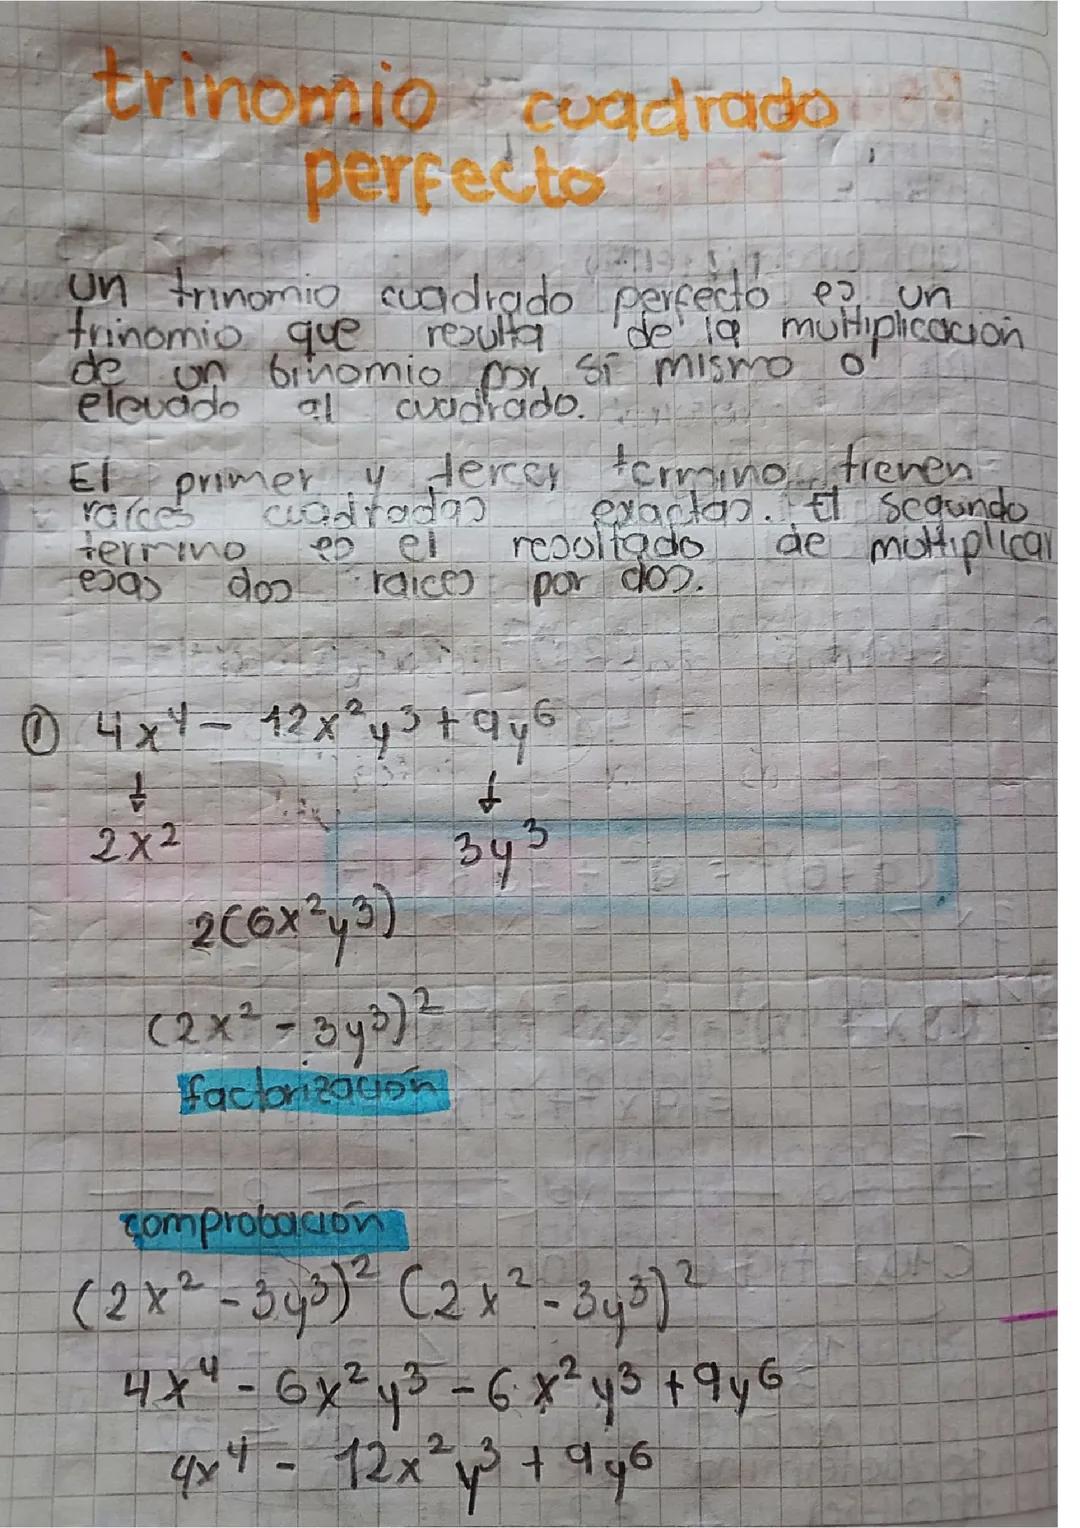 trinomio cuadrado
perfecto
un trinomio cuadrado perfecto es un
trinomio que resulta de la multiplicación
de un binomio por sí mismo o
elevado al cuadrado.
El primer y tercer termino tienen
raíces cuadradas exactas. El segundo
termino es el resoltado de multiplicar
esas dos raices por dos.
① 4x⁴ - 12x²y³ + 9y⁶
↓ ↓
2x² 3y³
2(6x²y³)
(2x² - 3y³)²
factorización
comprobación
(2x² - 3y³)² (2x² - 3y³)²
4x⁴ - 6x²y³ - 6x²y³ + 9y⁶
4x⁴ - 12x²y³ + 9y⁶